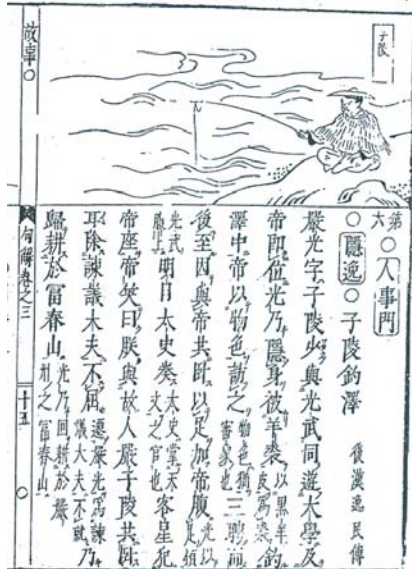 子陵
第六○人事門
○隱逸○子陵釣澤 後漢逸民傳
嚴光字子陵少與光武同遊大學及
帝即位光乃隱身彼羊裘以黑羊皮爲裘釣
澤中帝以物色訪之物色猶審察也三聘而
後至因與帝共臥以足加帝腹光以足傾
光武腹上明日太史奏太史掌天文之官也客星犯
帝座帝笑曰朕與故人嚴子陵共臥
耳除諫議大夫不屈遷嚴光爲諫議大夫不就乃
歸耕於冨春山光乃回耕於嚴州之冨春山
故事○
句解卷之三
十五